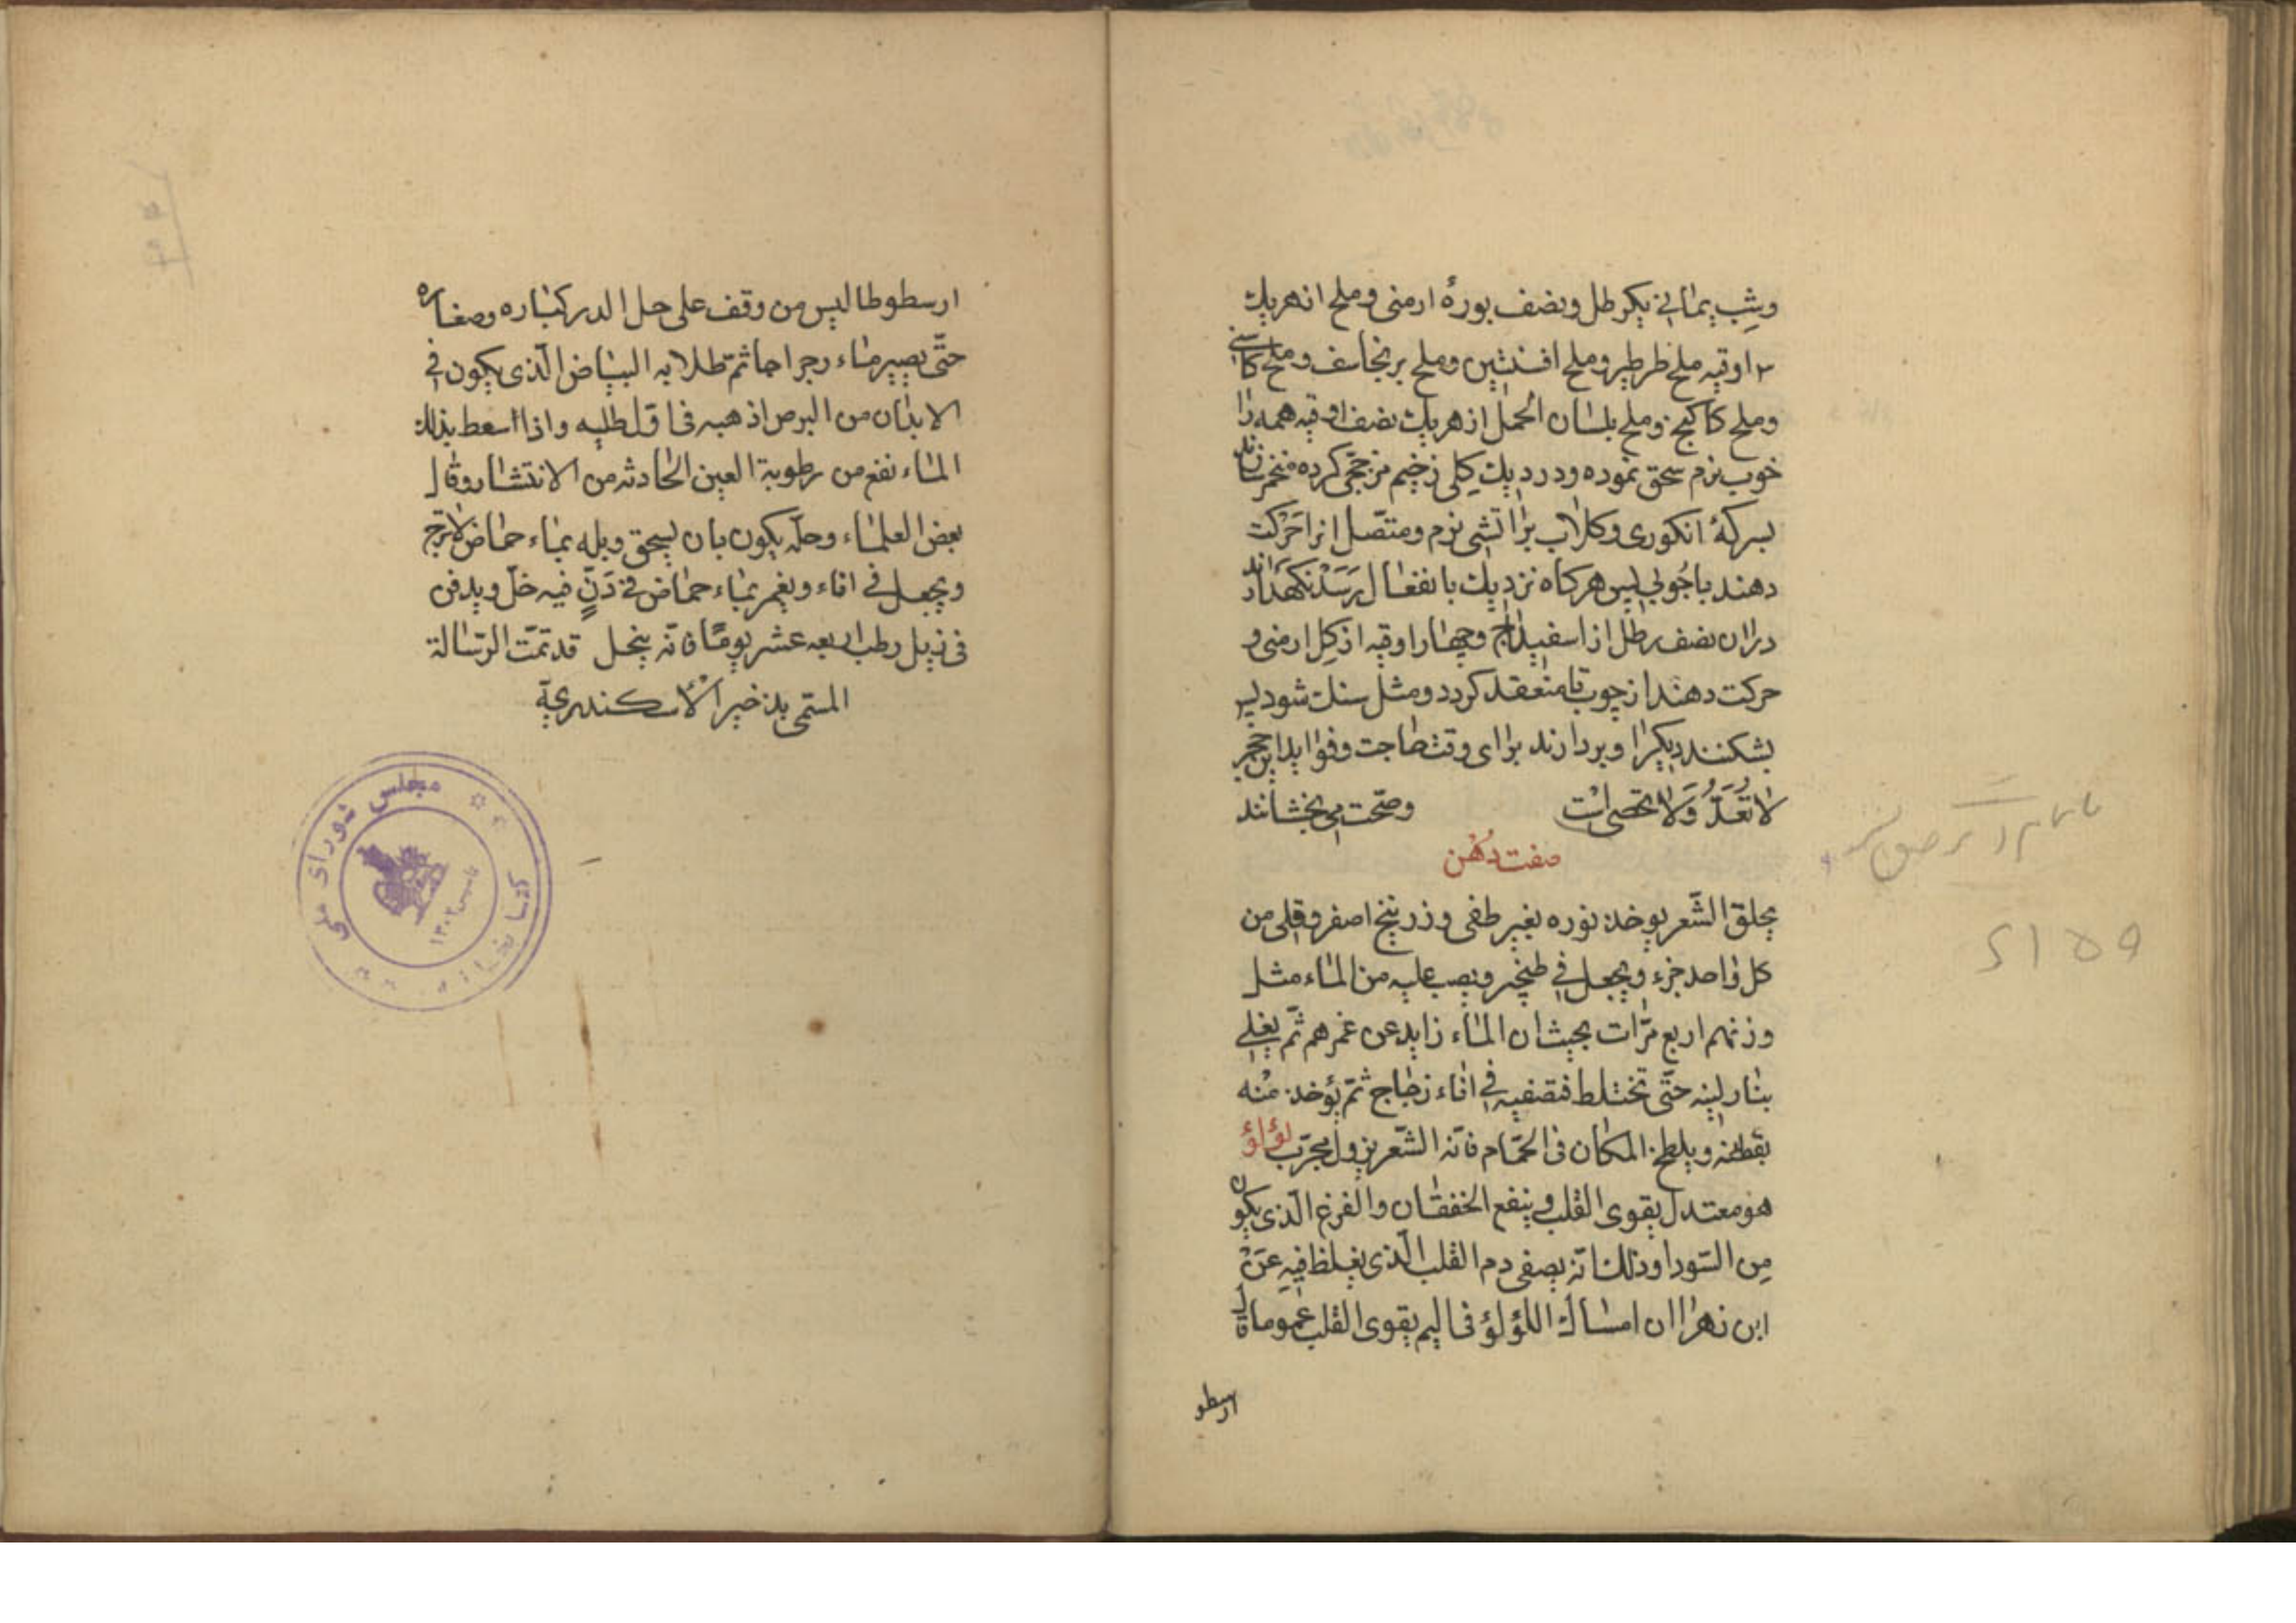 وشب یمانی یکرطل ونصف بورهٔ ارمنی وملح از هریك
۲ اوقیه ملح طرطیر وملح افسنتین وملح برنجاسف وملح کاسنی
وملح کاکنج وملح بلسان الحمل از هریك نصف اوقیه همه را
خوب نرم سحق نموده ودر دیك کلی زخیم مزججی کرده مخمر سازند
بسرکهٔ انکوری وکلاب بر اتشی نرم ومتصل انرا حرکت
دهند باچوبی پس هرکاه نزدیك بانفعال رسد نکهدارند
دران نصف رطل از اسفیداج وچهار اوقیه از کل ارمنی و
حرکت دهند از چوب تا منعقد کردد ومثل سنك شود پس
بشکنند دیکرا وبردارند برای وقت حاجت وفواید این حجر
لا تعد ولا تحصی است وصحت می بخشانند
صفت دهن
یحلق الشعر یوخذ نوره بغیر طفی وزرنیخ اصفر وقلی من
کل واحد جزء ویجعل فی طنجیر ویصب علیه من الماء مثل
وزنهم اربع مرّات بحیث ان الماء زاید عن غمرهم ثمّ یغلی
بنار لینه حتّی تختلط فتصفیه فی اناء زجاج ثمّ یؤخذ منه
بقطنه ویلطخ المکان فی الحمّام فانّه الشّعر یزول مجرّب لؤلؤ
هو معتدل یقوی القلب وینفع الخفقان والفزع الّذی یکون
مِن السّودا وذلك انّه یصفی دم القلب الّذی یغلظ فیه عَنْ
ابن زهر ان امساك اللؤلؤ فی الیم یقوی القلب عموما قال
ارسطو
ارسطوطالیس من وقف علی حل الدر کباره وصغاره
حتّی یصیر ماء رجراجا ثمّ طلا به البیاض الّذی یکون فی
الابدان من البرص اذهبه فی اوّل طلیه واذا اسعط بذلك
الماء نفع من رطوبة العین الحادثه من الانتشار وقال
بعض العلماء وحلّه یکون بان یسحق ویله بماء حماض الاترج
ویجعل فی اناء ویغمر بماء حماض فی دَنٍّ فیه خلّ ویدفن
فی زبل رطب اربعه عشر یومًا فانّه ینحل قد تمّت الرّسالة
المسمّی بذخیر الأسکندریّة
کتابخانه مجلس شورای ملی
تاسیس ۱۳۰۲